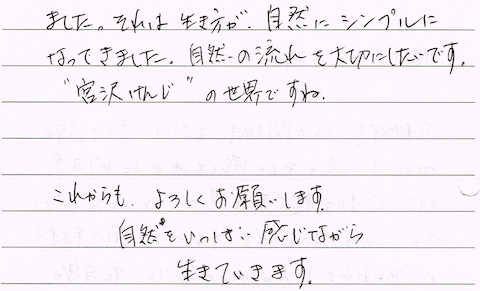 ました。それは生き方が、自然にシンプルに
なってきました。自然の流れを大切にしたいです。
"宮沢けんじ"の世界ですね。
これからも、よろしくお願いします。
自然をいっぱい感じながら
生きていきます。